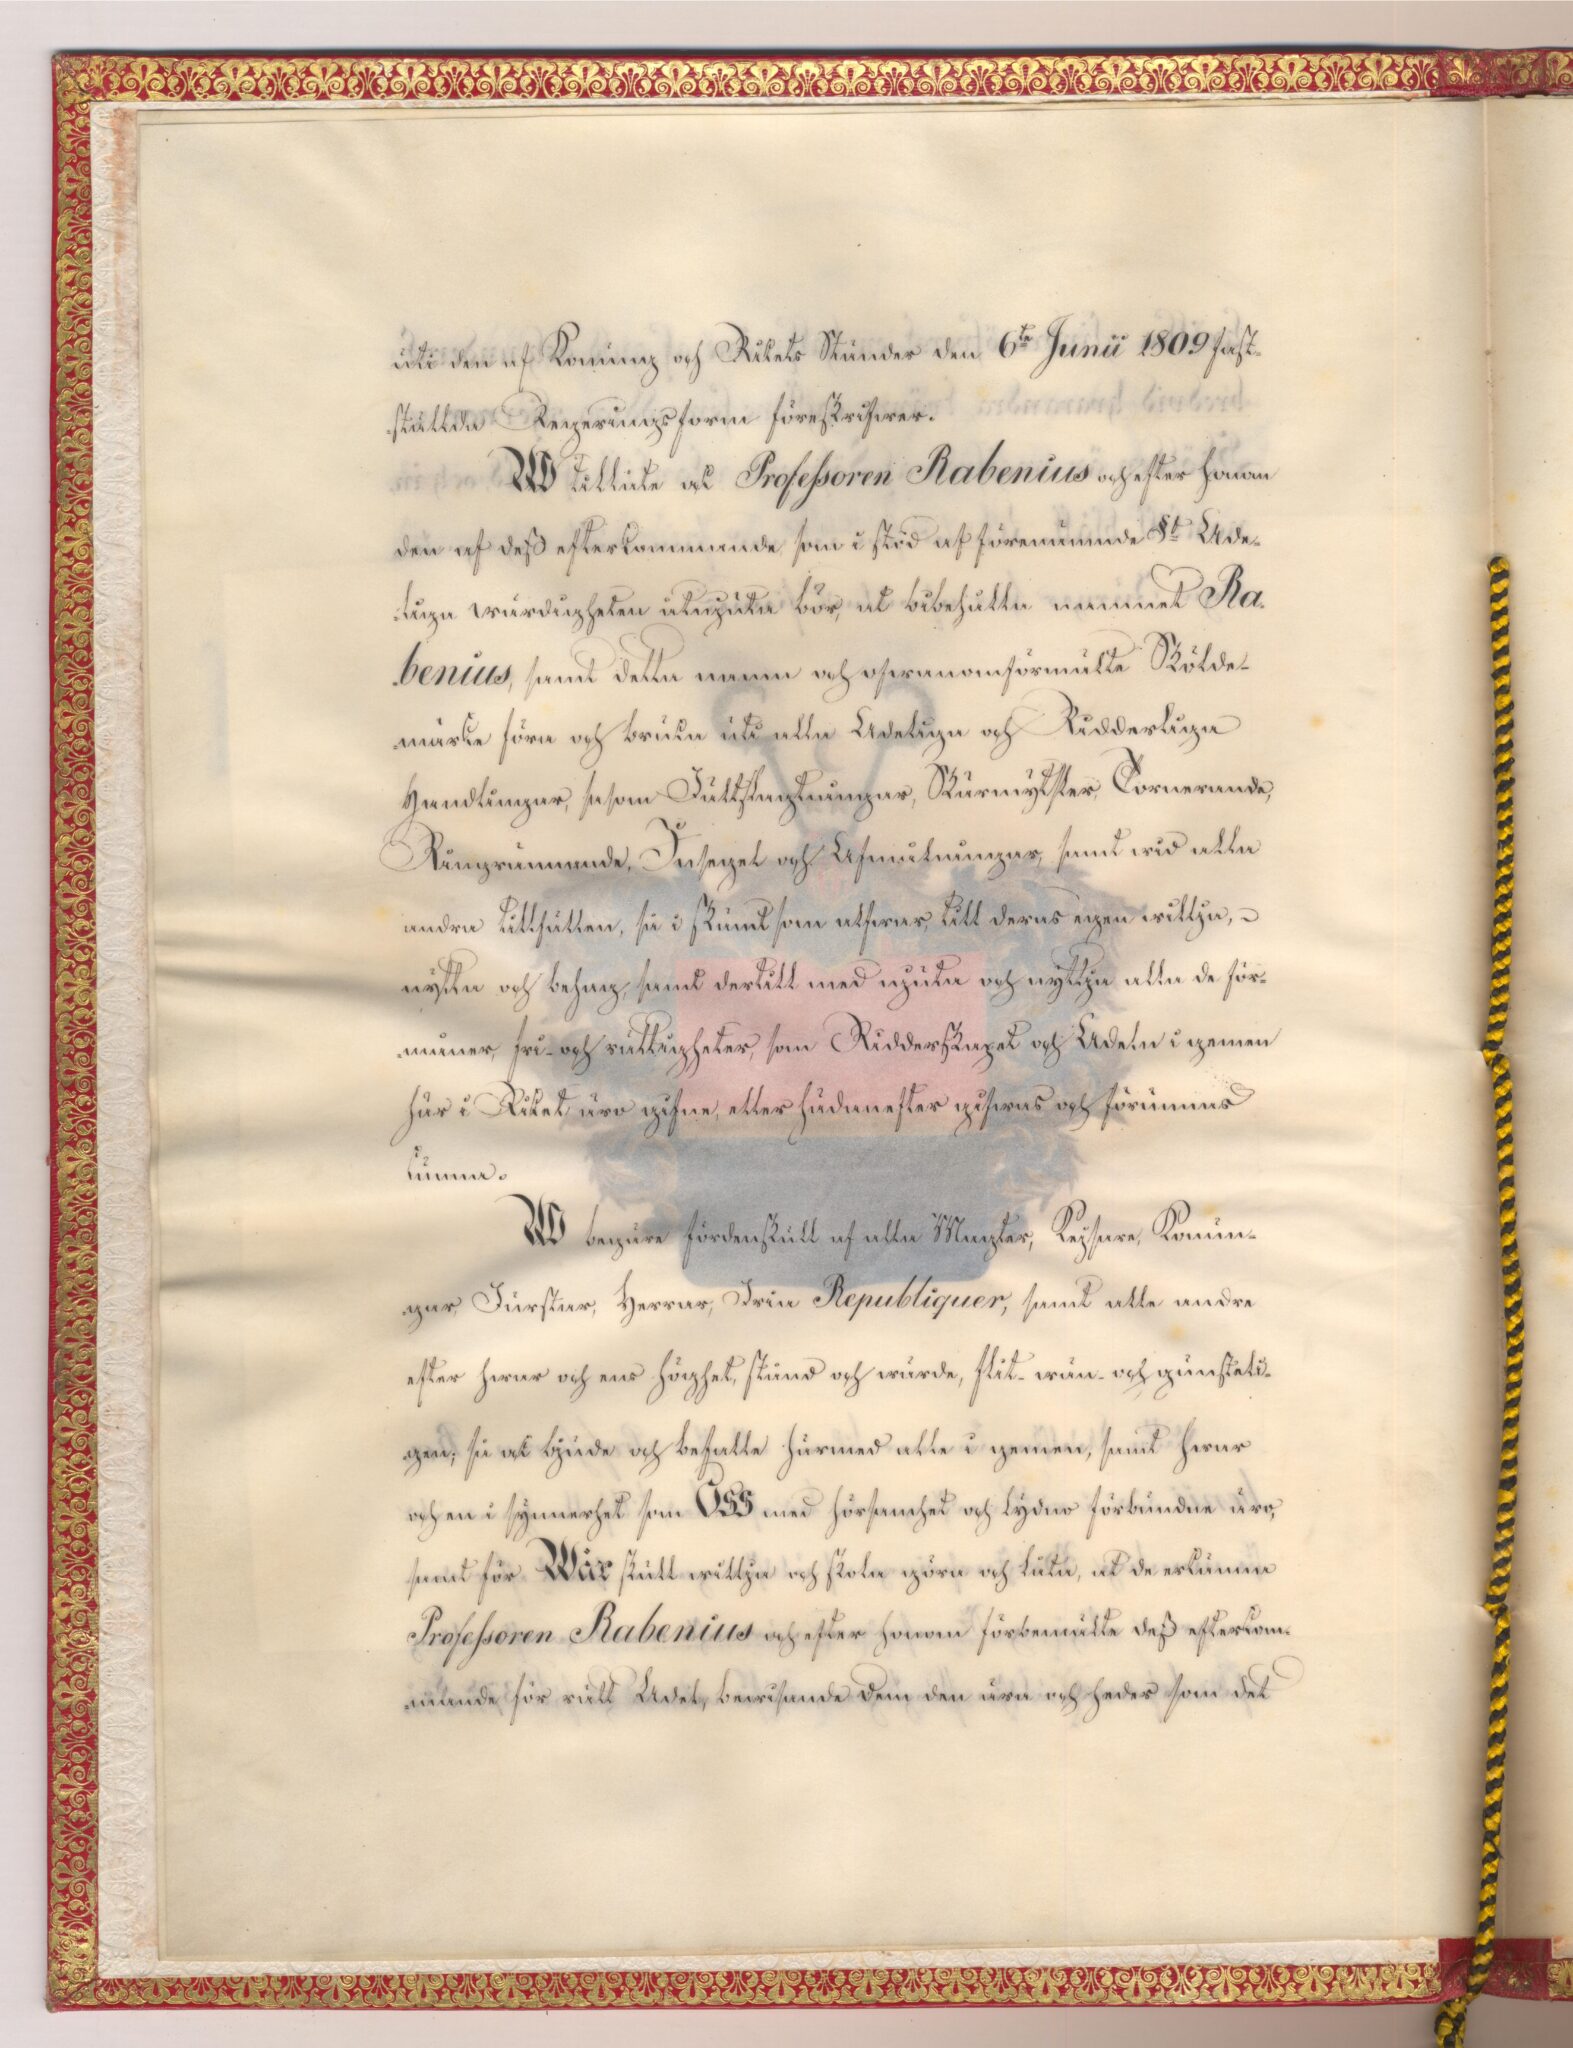 uti den af Konung och Rikets Ständer den 6te Junii 1809 fast-
ställda Regeringsform föreskrifwer.
Wi tillåte at Professoren Rabenius och efter honom
den af deß efterkommande som i stöd af förenämnde §t Ade-
liga wärdigheten åtnjuta bör, at bibehålla namnet Ra-
benius, samt detta namn och ofwanomförmälte Skölde-
märke föra och bruka uti alla Adeliga och Ridderliga
Handlingar, såsom Fältslagtningar, Skärmytsler, Tornerande,
Ringrännande, Insegel och Afmålningar, samt wid alla
andra tillfällen, så i skämt som alfwar, till deras egen wilja,
nytta och behag, samt dertill med njuta och nyttja alla de för-
måner, fri- och rättigheter, som Ridderskapet och Adeln i gemen
här i Riket äro gifne, eller hädanefter gifwas och förunnas
kunna.
Wi begäre fördenskull af alla Magter, Kejsare, Konun-
gar, Furstar, Herrar, Fria Republiquer, samt alle andre
efter hwar och ens höghet, stånd och wärde, flit- wän- och gunsteli-
gen; så ock bjude och befalle härmed alle i gemen, samt hwar
och en i synnerhet som Oss med hörsamhet och lydno förbundne äro,
samt för Wår skull willja och skola göra och låta, at de erkänna
Professoren Rabenius och efter honom förbemälte deß efterkom-
mande för rätt Adel, bewisande dem den ära och heder som det